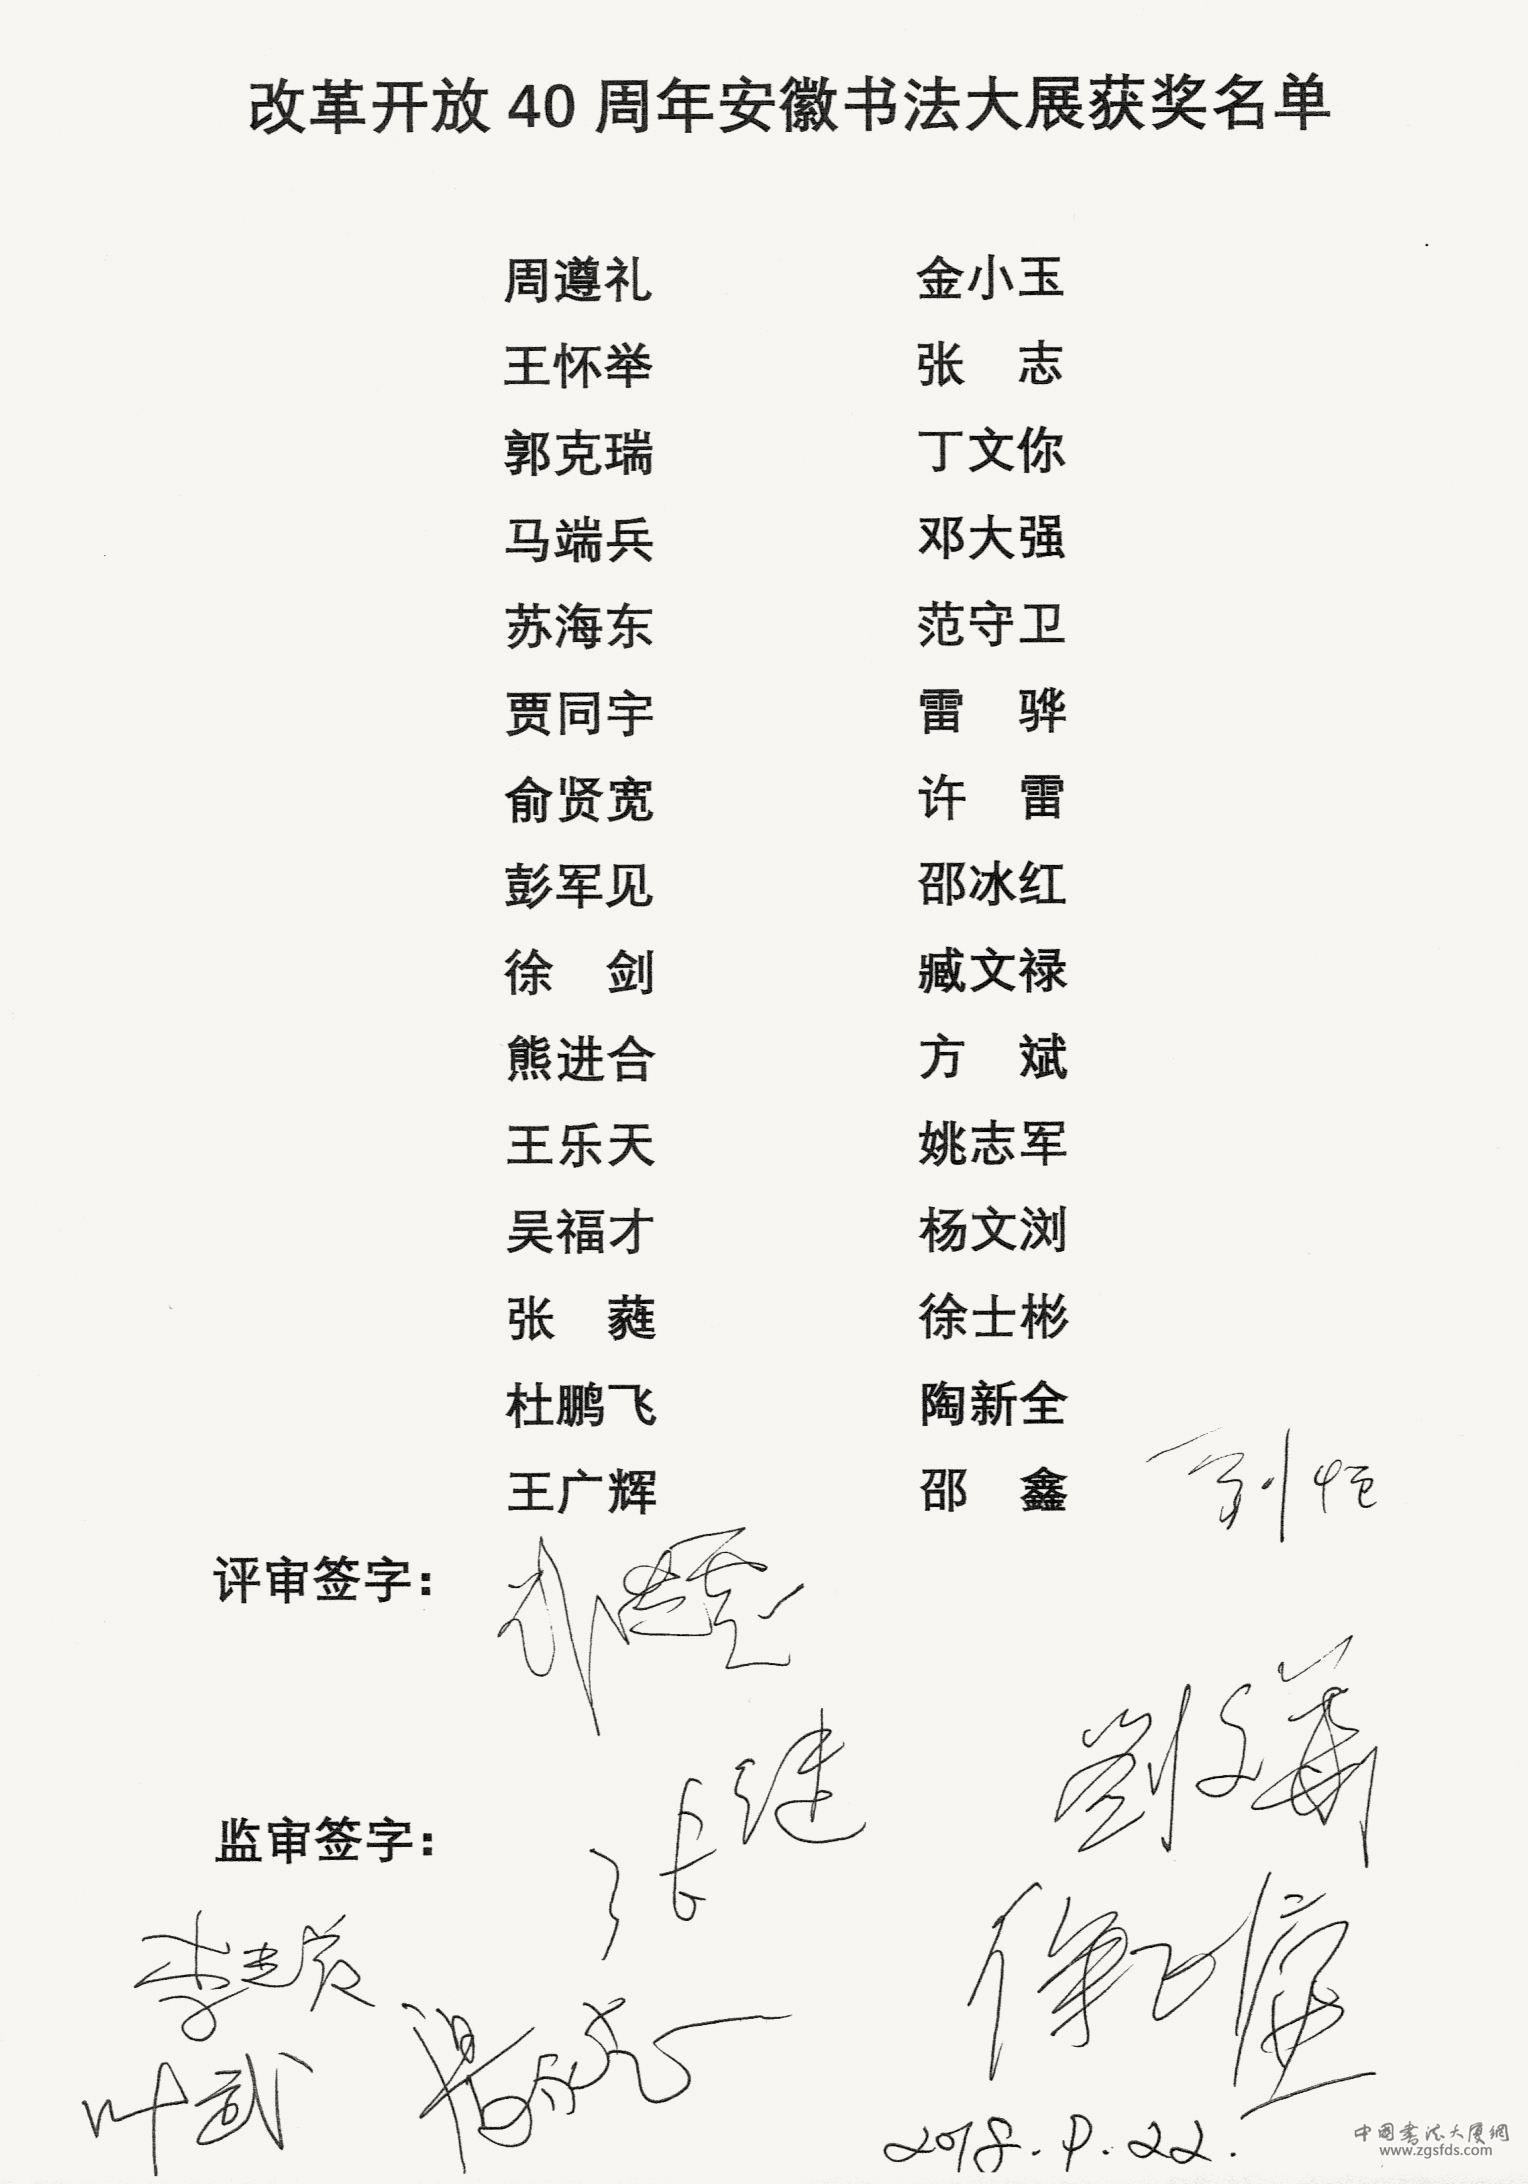 改革开放 40 周年安徽书法大展获奖名单
周遵礼 金小玉
王怀举 张 志
郭克瑞 丁文你
马端兵 邓大强
苏海东 范守卫
贾同宇 雷 骅
俞贤宽 许 雷
彭军见 邵冰红
徐 剑 臧文禄
熊进合 方 斌
王乐天 姚志军
吴福才 杨文浏
张 蕤 徐士彬
杜鹏飞 陶新全
王广辉 邵 鑫
刘恒
评审签字:
劉文華
张继
监审签字:
叶武
2018.9.22.
中国书法大厦網
www.zgsfds.com